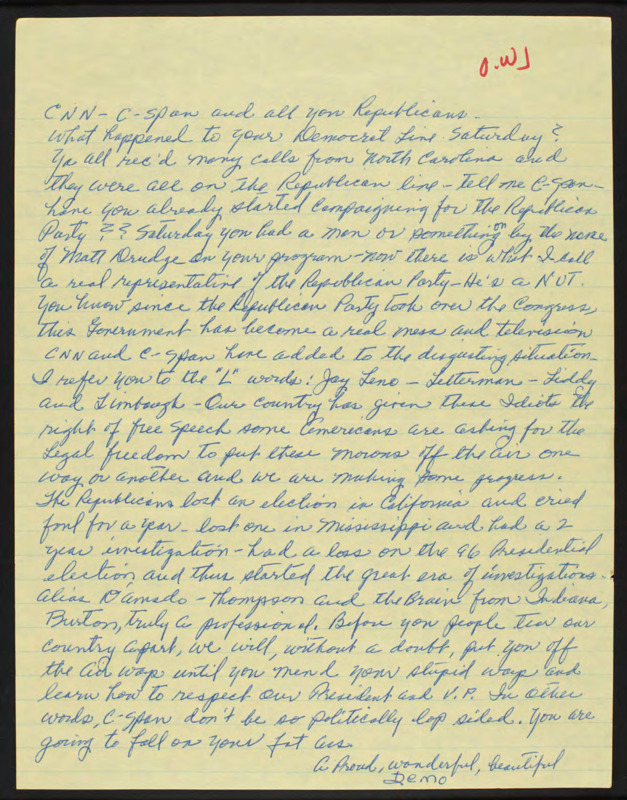 O.W.
CNN - C-Span and all you Republicans.
What happened to your Democrat Line Saturday?
Ya all rec'd many calls from North Carolina and
they were all on the Republican line - tell me C-Span -
have you already started campaigning for the Republican
Party ?? Saturday you had a man or something on by the name
of Matt Drudge on your program - now there is what I call
a real representative of the Republican Party - He's a NUT.
You know since the Republican Party took over the Congress,
this Government has become a real mess and television
CNN and C-Span have added to the disgusting situation -
I refer you to the "L" words: Jay Leno - Letterman - Liddy
and Limbaugh - Our country has given these Idiots the
right of free speech some Americans are asking for the
Legal freedom to put these morons off the air one
way or another and we are making some progress.
The Republicans lost an election in California and cried
foul for a year - lost one in Mississippi and had a 2
year investigation - had a loss on the 96 Presidential
election and thus started the great era of investigations -
alias D'Amado - Thompson and the Brain from Indiana,
Burton, truly a professional. Before you people tear our
country apart, we will, without a doubt, put you off
the air wap until you mend your stupid wap and
learn how to respect our President and V.P. In other
words, C-Span don't be so politically lop sided. You are
going to fall on your fat ass
A Proud, wonderful, beautiful
Demo